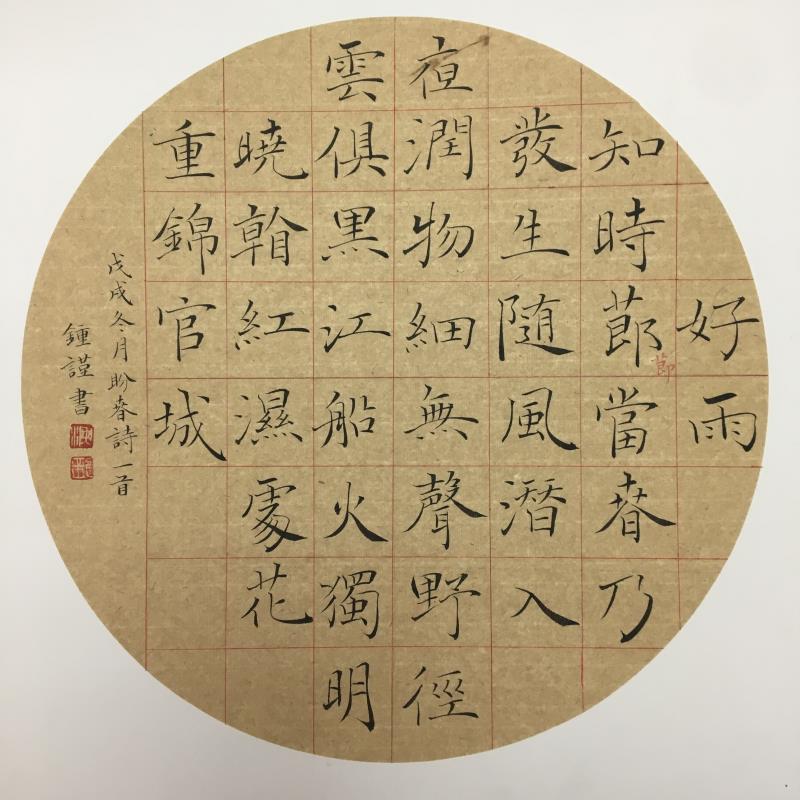 好雨
知時莭當春乃
莭
發生随風潜入
夜潤物細無聲野徑
雲俱黑江船火獨明
曉看紅濕處花
重錦官城
戊戌冬月盼春詩一首
鍾謹書